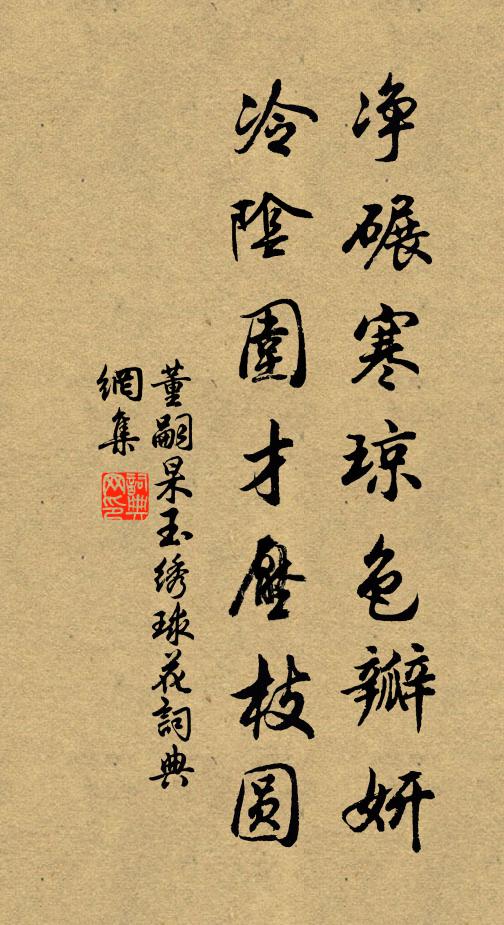 净碾寒琼色瓣妍
冷阴围才压枝圆
董嗣杲玉绣球花词典
网集
词典网印